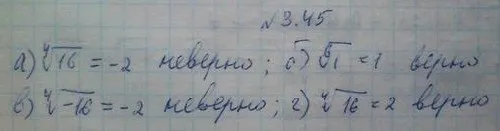 №3.45
а) ∜16 = -2 неверно; б) ⁶√1 = 1 верно
в) ∜-16 = -2 неверно; г) ∜16 = 2 верно